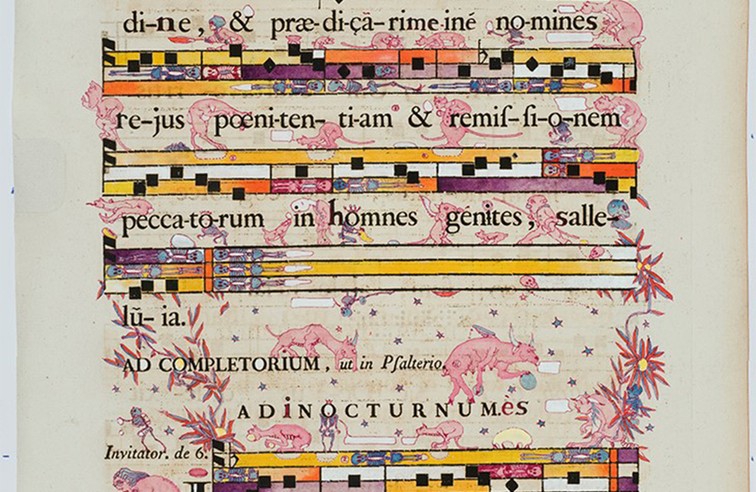 di-ne, & præ-di-çã-rime-iné no-mines
re-jus pœni-ten-ti-am & remiſ-ſi-o-nem
pecca-to-rum in homnes génites, salle-
lũ-ia.
AD COMPLETORIUM, ut in Pſalterio.
ADiNOCTURNUM.ès
Invitator. de 6.